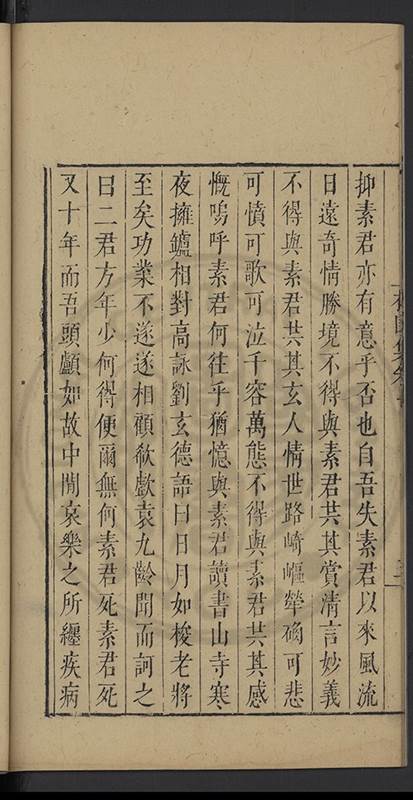 抑素君亦有意乎否也自吾失素君以來風流
日遠奇情勝境不得與素君共其賞清言妙義
不得與素君共其玄人情世路崎嶇犖确可悲
可憤可歌可泣千容萬態不得與素君共其感
慨嗚呼素君何往乎猶憶與素君讀書山寺寒
夜擁鑪相對高詠劉玄德語曰日月如梭老將
至矣功業不遂遂相顧欷歔袁九齡聞而訶之
曰二君方年少何得便爾無何素君死素君死
又十年而吾頭顱如故中間哀樂之所纏疾病